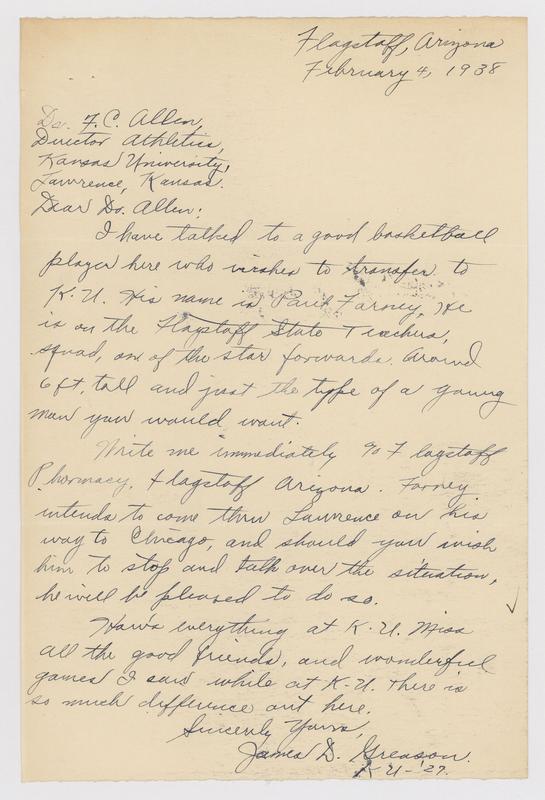 Flagstaff, Arizona
February 4, 1938
Dr. F. C. Allen,
Director Athletics,
Kansas University,
Lawrence, Kansas.
Dear Dr. Allen:
I have talked to a good basketball
player here who wishes to transfer to
K. U. His name is Paul Farney. He
is on the Flagstaff State Teachers,
squad, one of the star forwards. Around
6 ft. tall and just the type of a young
man you would want.
Write me immediately c/o Flagstaff
Pharmacy, Flagstaff Arizona. Farney
intends to come thru Lawrence on his
way to Chicago, and should you wish
him to stop and talk over the situation,
he will be pleased to do so.
How's everything at K. U. Miss
all the good friends, and wonderful
games I saw while at K. U. There is
so much difference out here.
Sincerely Yours,
James D. Greason.
K U - '27.